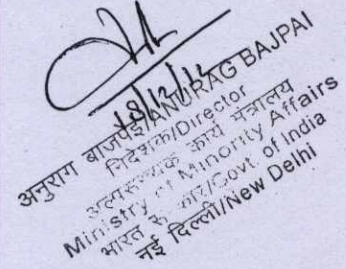 अनुराग बाजपेई/ANURAG BAJPAI
निदेशक/Director
अल्पसंख्यक कार्य मंत्रालय
Ministry of Minority Affairs
भारत सरकार/Govt. of India
नई दिल्ली/New Delhi